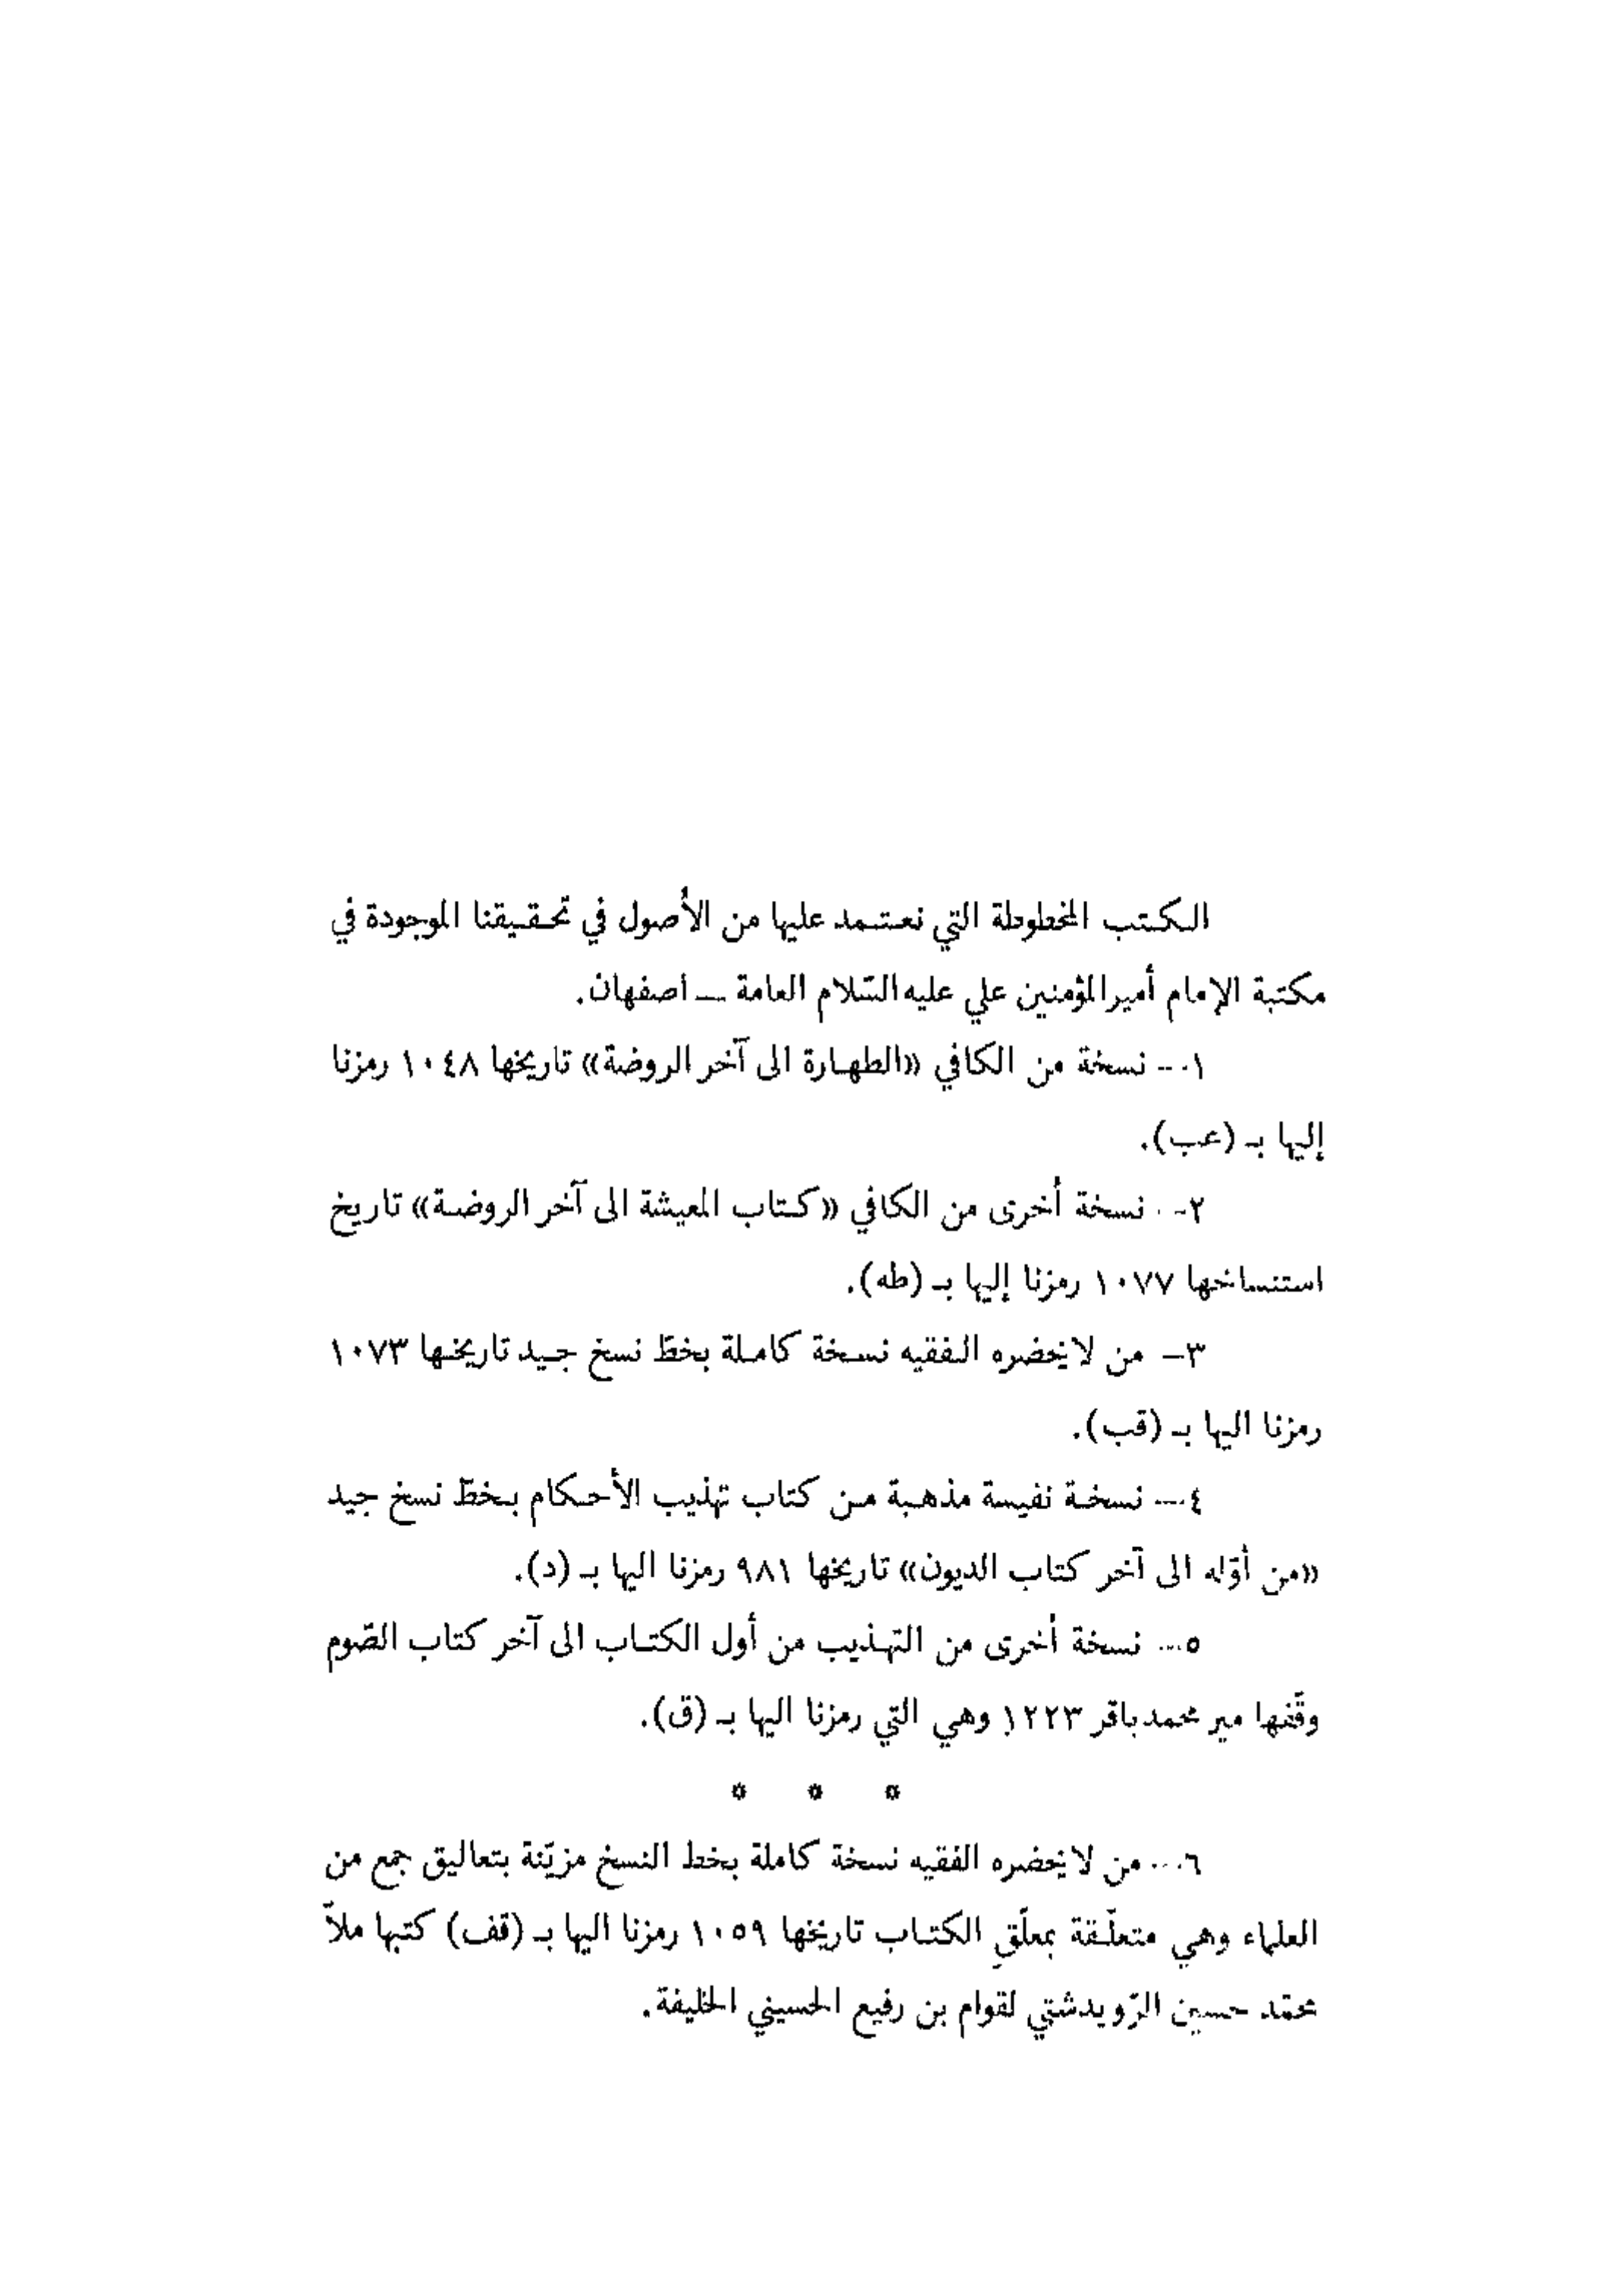 الكتب المخطوطة التي نعتمد عليها من الأصول في تحقيقنا الموجودة في
مكتبة الإمام أميرالمؤمنين علي عليه السّلام العامة — اصفهان.
١— نسخة من الكافي «الطهارة الى آخر الروضة» تاريخها ١٠٤٨ رمزنا
إليها بـ (عب).
٢— نسخة أخرى من الكافي «كتاب المعيشة الى آخر الروضة» تاريخ
استنساخها ١٠٧٧ رمزنا إليها بـ (طه).
٣— من لايحضره الفقيه نسخة كاملة بخطّ نسخ جيد تاريخها ١٠٧٣
رمزنا اليها بـ (قب).
٤— نسخة نفيسة مذهبة من كتاب تهذيب الأحكام بخطّ نسخ جيد
«من أوّله الى آخر كتاب الديون» تاريخها ٩٨١ رمزنا اليها بـ (د).
٥— نسخة أخرى من التهذيب من أول الكتاب الى آخر كتاب الصّوم
وقّفها مير محمدباقر ١٢٢٣ وهي التي رمزنا اليها بـ (ق).
* * *
٦— من لايحضره الفقيه نسخة كاملة بخط النسخ مزيّنة بتعاليق جمع من
العلماء وهي متعلّقة بمعلّقِ الكتاب تاريخها ١٠٥٩ رمزنا اليها بـ (قف) كتبها ملاّ
محمّد حسين الرّويدشتي لقوام بن رفيع الحسيني الخليفة.